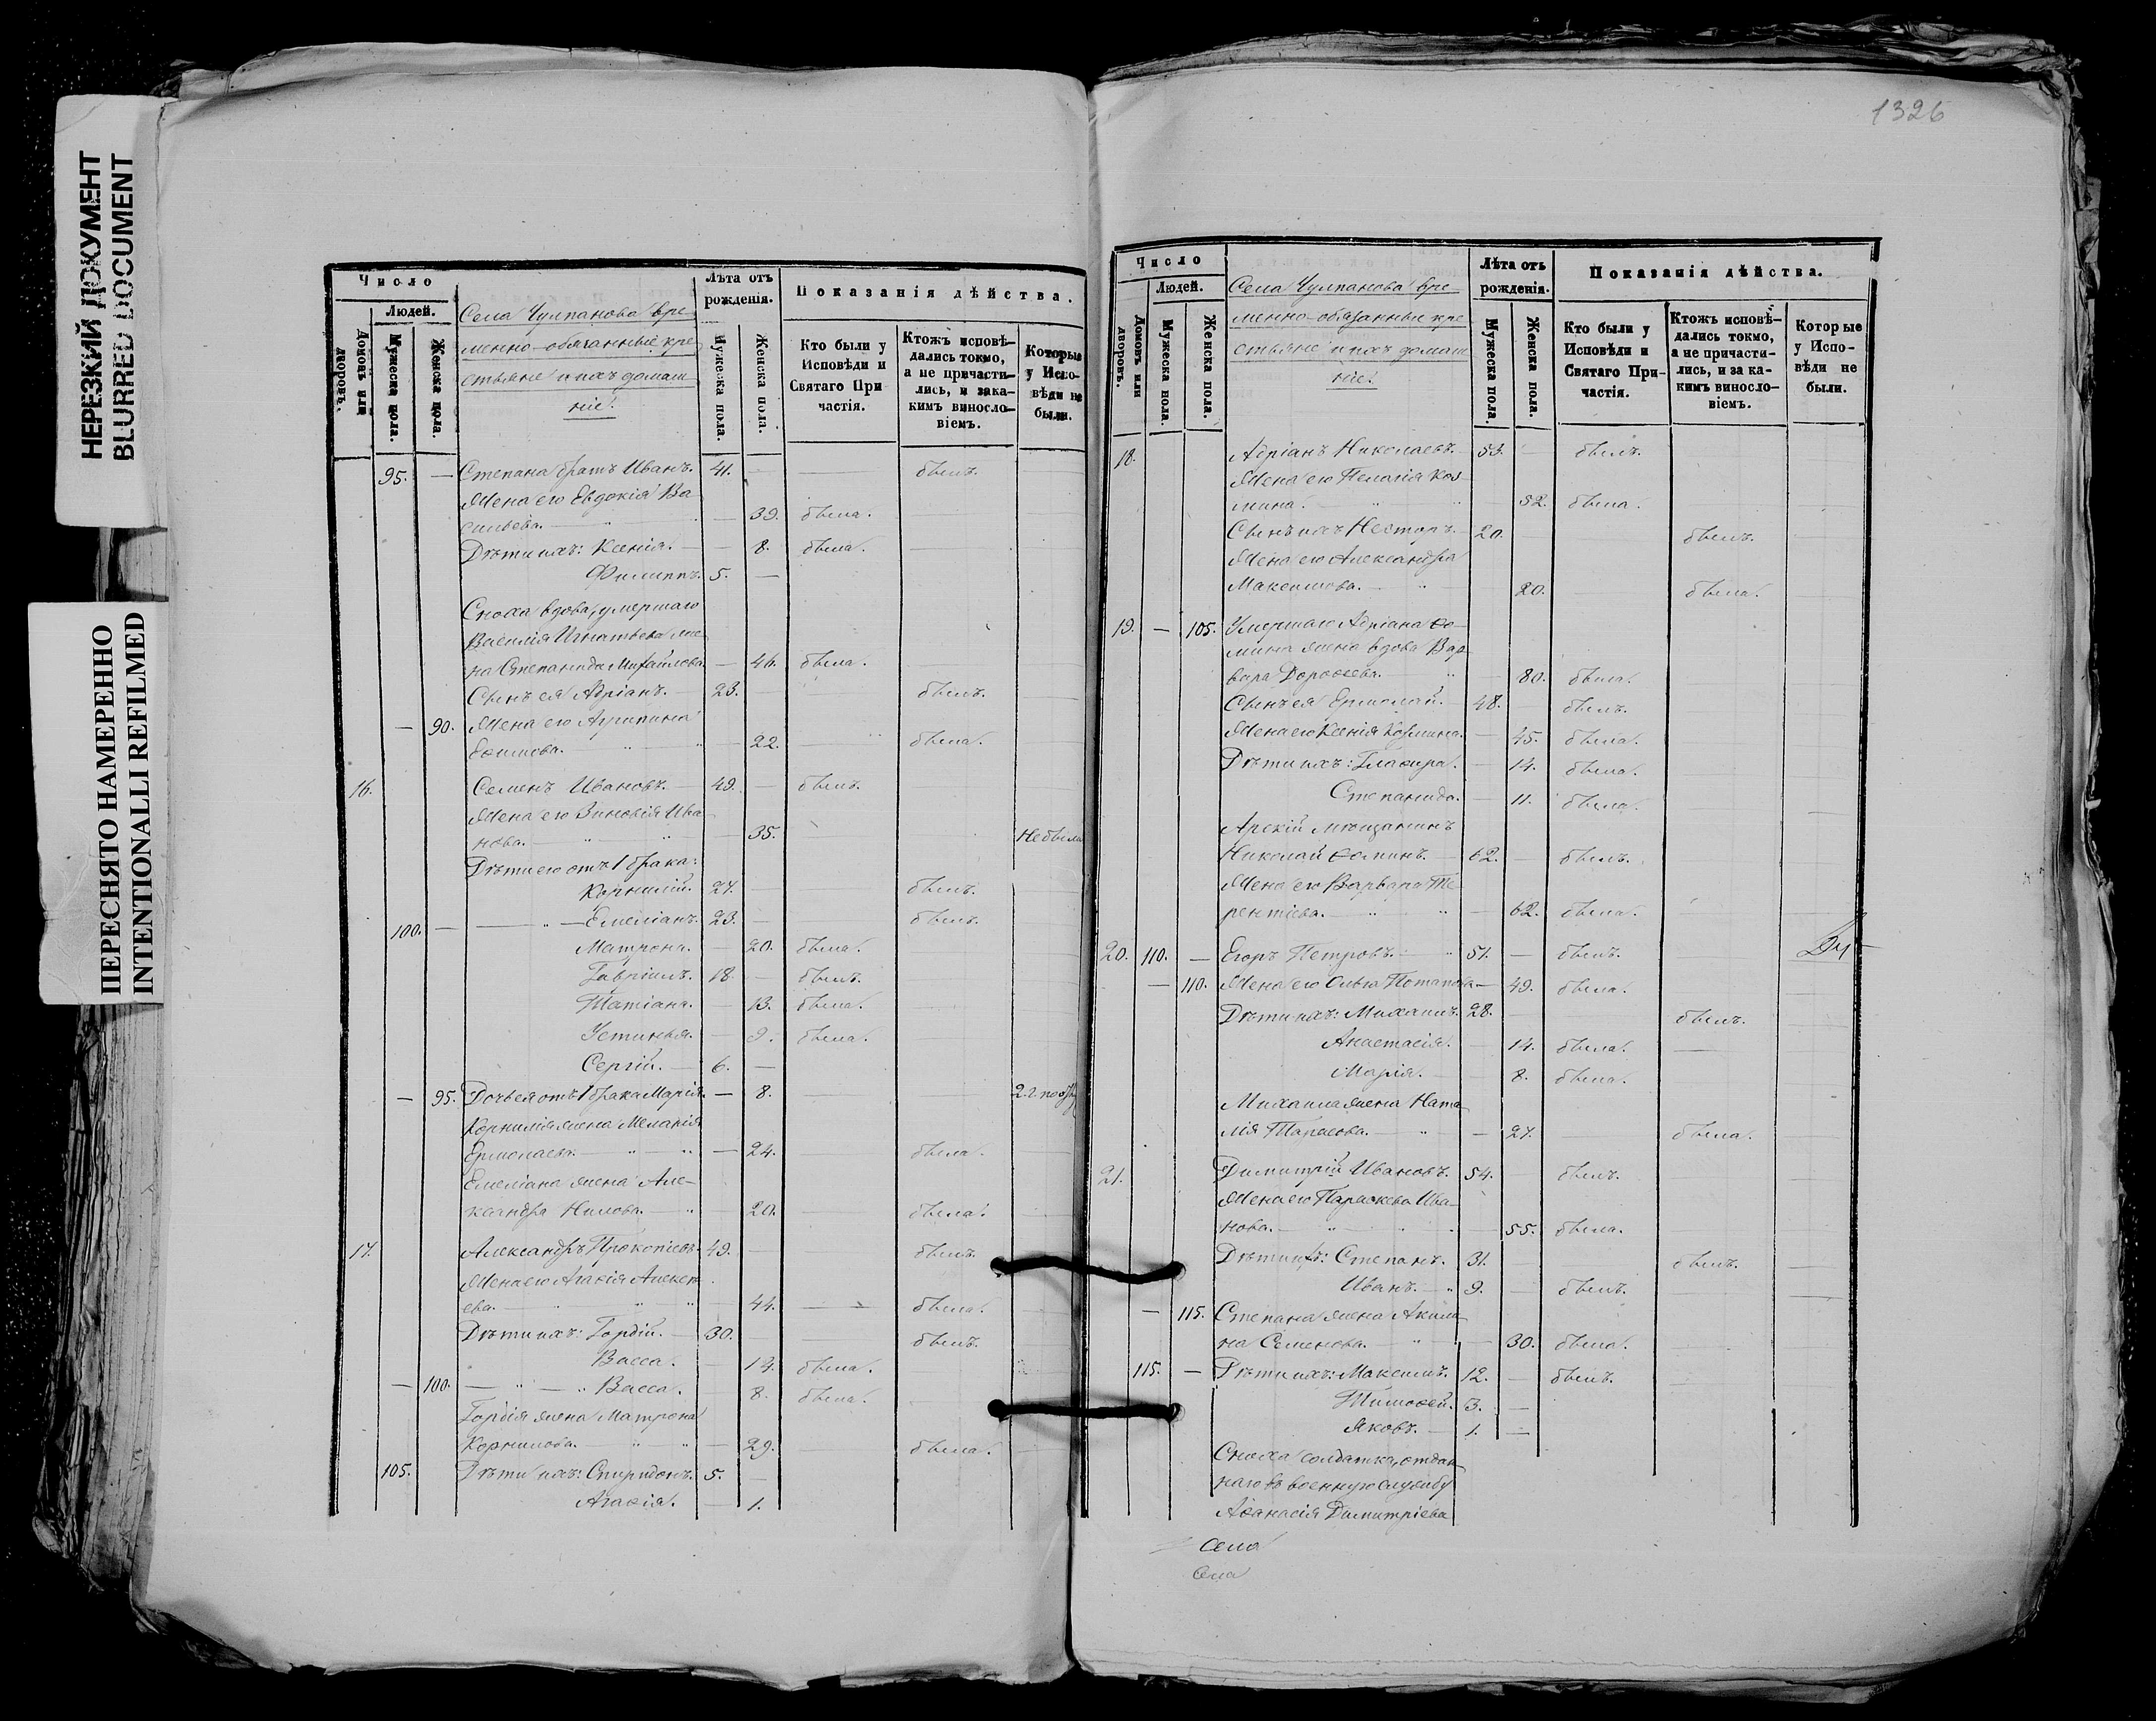 НЕРЕЗКИЙ ДОКУМЕНТ
BLURRED DOCUMENT
ПЕРЕСНЯТО НАМЕРЕННО
INTENTIONALLI REFILMED
Число
Людей.
Домовъ или дворовъ.
Мужеска пола.
Женска пола.
Села Чулпанова вре-
менно-обязанные кре
стьяне и ихъ домаш
ніе.
Лѣта отъ рожденія.
Мужеска пола.
Женска пола.
Показанія дѣйства.
Кто были у Исповѣди и Святаго При частія.
Ктожъ исповѣ-дались токмо, а не причасти-лись, и зака-кимъ виносло-віемъ.
Которые у Испо-вѣди не были.
95. — Степана братъ Иванъ. 41. — былъ.
Жена его Евдокія Ва
сильева. — 39. была.
Дѣти ихъ: Ксенія. — 8. была.
Филиппъ. 5. —
Сноха вдова, умершаго
Василія Игнатьева же
на Степанида Михайлова. — 46. была.
Сынъ ея Адріанъ. 23. былъ.
— 90. Жена его Агрипина
Ефимова. 22. была.
16. Семенъ Ивановъ. 49. — былъ.
Жена его Зиновія Ива
нова. 35. Не была
Дѣти его отъ 1 брака:
Корнилій. 27. — былъ.
100. — Емеліанъ. 23. — былъ.
Матрона. — 20. была.
Гавріилъ. 18. — былъ.
Татіана. — 13. была.
Устинья. — 9. была.
Сергій. 6. —
— 95. Дочь ея отъ 1 брака Марія. — 8.
Корнилія жена Меланія
Ермолаева. — 24. была.
Емеліана жена Але-
ксандра Нилова. 20. была.
17. Александръ Прокопіевъ. 49. — былъ.
Жена его Агафія Алексѣ
ева. 44. — была.
Дѣти ихъ: Гордій. 30. былъ.
Васса. 14. была.
— 100. — Васса. 8. была.
Гордія жена Матрона
Корнилова. — 29. была.
105. Дѣти ихъ: Спиридонъ. 5. —
Агафія. — 1.
1326
Число
Людей.
Домовъ или дворовъ.
Мужеска пола.
Женска пола.
Села Чулпанова вре-
менно-обязанные кре
стьяне и ихъ домаш
ніе.
Лѣта отъ рожденія.
Мужеска пола.
Женска пола.
Показанія дѣйства.
Кто были у Исповѣди и Святаго При-частія.
Ктожъ исповѣ-дались токмо, а не причасти-лись, и за ка-кимъ виносло-віемъ.
Которые у Испо-вѣди не были.
18. Адріанъ Николаевъ. 53. — былъ.
Жена его Пелагія Коз
мина. 52. была.
Сынъ ихъ Несторъ. 20. былъ.
Жена его Александра
Максимова. 20. была.
19. — 105. Умершаго Адріана Фо-
мина жена вдова Вар
вара Дорофеева. 80. была.
Сынъ ея Ермолай. 48. — былъ.
Жена его Ксенія Козмина. — 45. была.
Дѣти ихъ: Глафира. — 14. была.
Степанида. — 11. была.
Арскій мѣщанинъ
Николай Фоминъ. 62. — былъ.
Жена его Варвара Те
рентіева. — 62. была.
20. 110. — Егоръ Петровъ. 51. — былъ.
— 110. Жена его Ольга Потапова — 49. была.
Дѣти ихъ: Михаилъ. 28. былъ.
Анастасія. — 14. была. —
Марія. — 8. была.
Михаила жена Ната
лія Тарасова. — 27. была.
21. Димитрій Ивановъ. 54. — былъ.
Жена его Параскева Ива
нова. — 55. была.
Дѣти ихъ: Степанъ. 31. былъ.
Иванъ. 9. — былъ.
— 115. Степана жена Акили
на Семенова. — 30. была.
115. — Дѣти ихъ: Максимъ. 12. — былъ.
Тимофей. 3. —
Яковъ. 1. —
Сноха солдатка, отдан
наго въ военную службу
Афанасія Димитріева
села
села